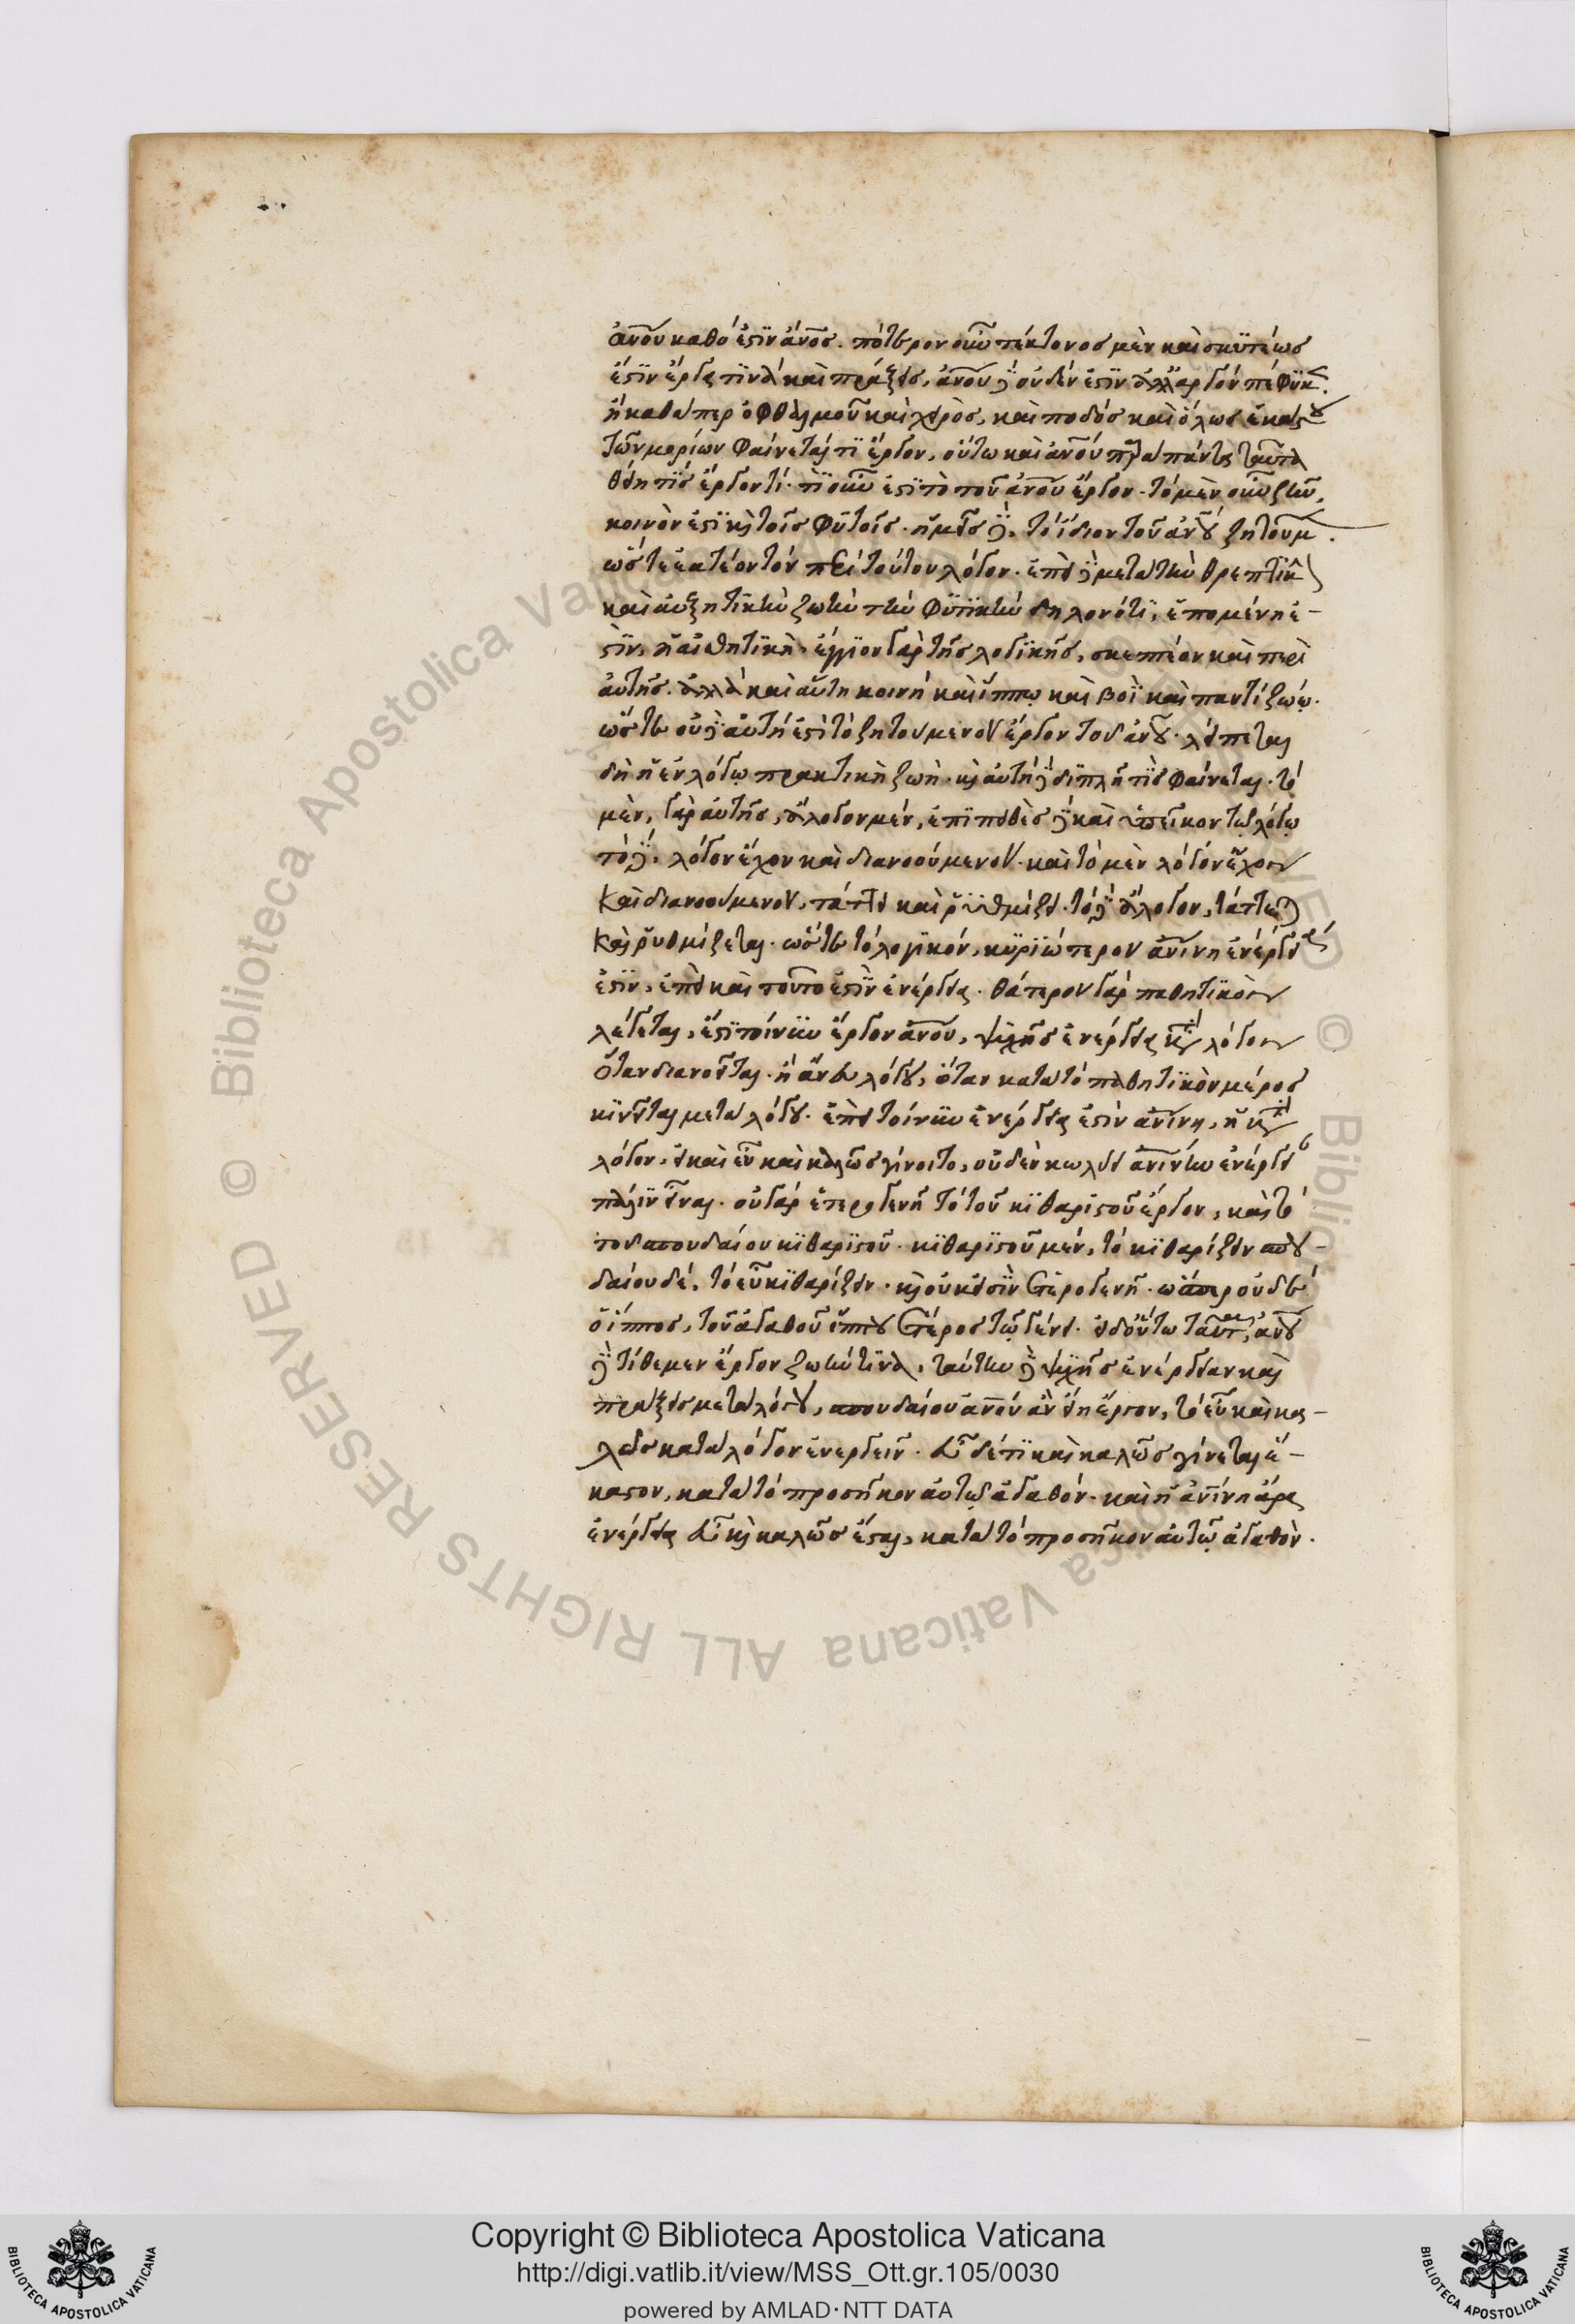 ἀνου καθό ἐστιν ἄνος. πότερον οὖν τέκτονος μὲν καὶ σκυτέως
ἐστὶν ἔργα τινὰ καὶ πράξεις, ἀνου δὲ οὐδέν ἐστιν ἀλλ' ἀργὸν πέφυκ.
ἢ καθάπερ ὀφθαλμοῦ καὶ χειρὸς, καὶ ποδὸς καὶ ὅλως ἑκάστου
τῶν μορίων φαίνεταί τι ἔργον, οὕτω καὶ ἀνου παρὰ πάντα ταῦτα
θείη τις ἔργον τί. τί οὖν ἐστὶ τὸ τοῦ ἀνου ἔργον. τὸ μὲν οὖν ζῆν,
κοινὸν ἐστὶ καὶ τοῖς φυτοῖς. ἡμεῖς δὲ, τὸ ἴδιον τοῦ ἀνου ζητοῦμ.
ὥστε ἐατέον τὸν περὶ τούτου λόγον. ἐπεὶ δὲ μετὰ τὴν θρεπτικὴν
καὶ αὐξητικὴν ζωὴν τὴν φυτικὴν δηλονότι, ἑπομένη ἐ-
στὶν, ἡ αἰσθητικὴ. ἔγγιον γὰρ τῆς λογικῆς, σκεπτέον καὶ περὶ
αὐτῆς. ἀλλὰ καὶ αὕτη κοινὴ καὶ ἵππῳ καὶ βοῒ καὶ παντὶ ζώῳ.
ὥστε οὐδ' αὐτή ἐστὶ τὸ ζητούμενον ἔργον τοῦ ἀνου. λείπεται
δὴ ἡ ἐν λόγῳ πρακτικὴ ζωή. καὶ αὐτὴ δὲ διπλῆ τις φαίνεται. τὸ
μὲν, γὰρ αὐτῆς, ἄλογον μέν, ἐπιπειθὲς δὲ καὶ ὑπεῖκον τῷ λόγῳ
τὸ δὲ, λόγον ἔχον καὶ διανοούμενον. καὶ τὸ μὲν λόγον ἔχον
καὶ διανοούμενον, τάττει καὶ ῥυθμίζει. τὸ δὲ ἄλογον, τάττεται
καὶ ῥυθμίζεται. ὥστε τὸ λογικόν, κυριώτερον ἀνίνη ἐνέργεια
ἐστίν, ἐπεὶ καὶ τοῦτο ἐστὶν ἐνέργεια. θάτερον γὰρ παθητικὸν
λέγεται, ἔστι τοίνυν ἔργον ἀνου, ψυχῆς ἐνέργεια κατὰ λόγον
ὅταν διανοῆται. ἢ ἄνευ λόγου, ὅταν κατὰ τὸ παθητικὸν μέρος
κινῆται μετὰ λόγου. ἐπεὶ τοίνυν ἐνέργεια ἐστὶν ἀνίνη, ἡ κατὰ
λόγον, εἰ καὶ εὖ καὶ καλῶς γίνοιτο, οὐδὲν κωλύει ἀνίνην ἐνέργειαν
πάλιν εἶναι. οὐ γὰρ ἑτερογενῆ τὸ τοῦ κιθαριστοῦ ἔργον, καὶ τὸ
τοῦ σπουδαίου κιθαριστοῦ. κιθαριστοῦ μέν, τὸ κιθαρίζειν σπου-
δαίου δέ, τὸ εὖ κιθαρίζειν. καὶ οὐκ εἰσὶν ἑτερογενῆ. ὥσπερ οὐδὲ
ὁ ἵππος, τοῦ ἀγαθοῦ ἵππου ἕτερος τῷ γένει. εἰ δ' οὕτω ταῦτα, ἀνου
δὲ τίθεμεν ἔργον ζωήν τινα, ταύτην δὲ ψυχῆς ἐνέργειαν καὶ
πράξεις μετὰ λόγου, σπουδαίου ἀνου ἂν εἴη ἔργον, τὸ εὖ καὶ κα-
λῶς κατὰ λόγον ἐνεργεῖν. εὖ δέ τι καὶ καλῶς γίνεται ἕ-
καστον, κατὰ τὸ προσῆκον αὐτῷ ἀγαθόν. καὶ ἡ ἀνίνη ἄρα
ἐνέργεια εὖ καὶ καλῶς ἔσται, κατὰ τὸ προσῆκον αὐτῷ ἀγαθὸν.
Copyright © Biblioteca Apostolica Vaticana
http://digi.vatlib.it/view/MSS_Ott.gr.105/0030
powered by AMLAD·NTT DATA
BIBLIOTECA APOSTOLICA VATICANA
BIBLIOTECA APOSTOLICA VATICANA
© Biblioteca Apostolica Vaticana ALL RIGHTS RESERVED